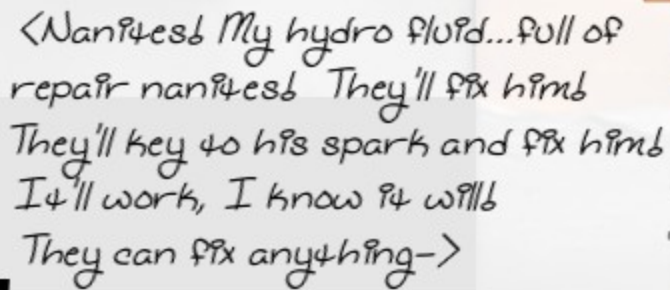 <Nanites! My hydro fluid...full of
repair nanites! They'll fix him!
They'll key to his spark and fix him!
It'll work, I know it will!
They can fix anything->